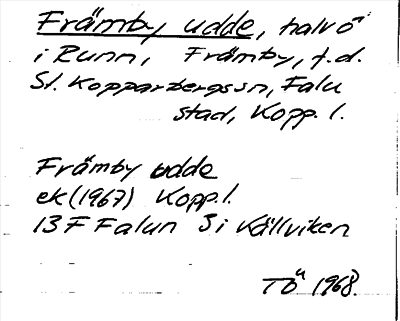 Främby udde, halvö
i Runn, Främby, f.d.
St. Kopparbergs sn, Falu
stad, Kopp. l.
Främby udde
ek (1967) Kopp. l.
13 F Falun Si Källviken
TÖ 1968.